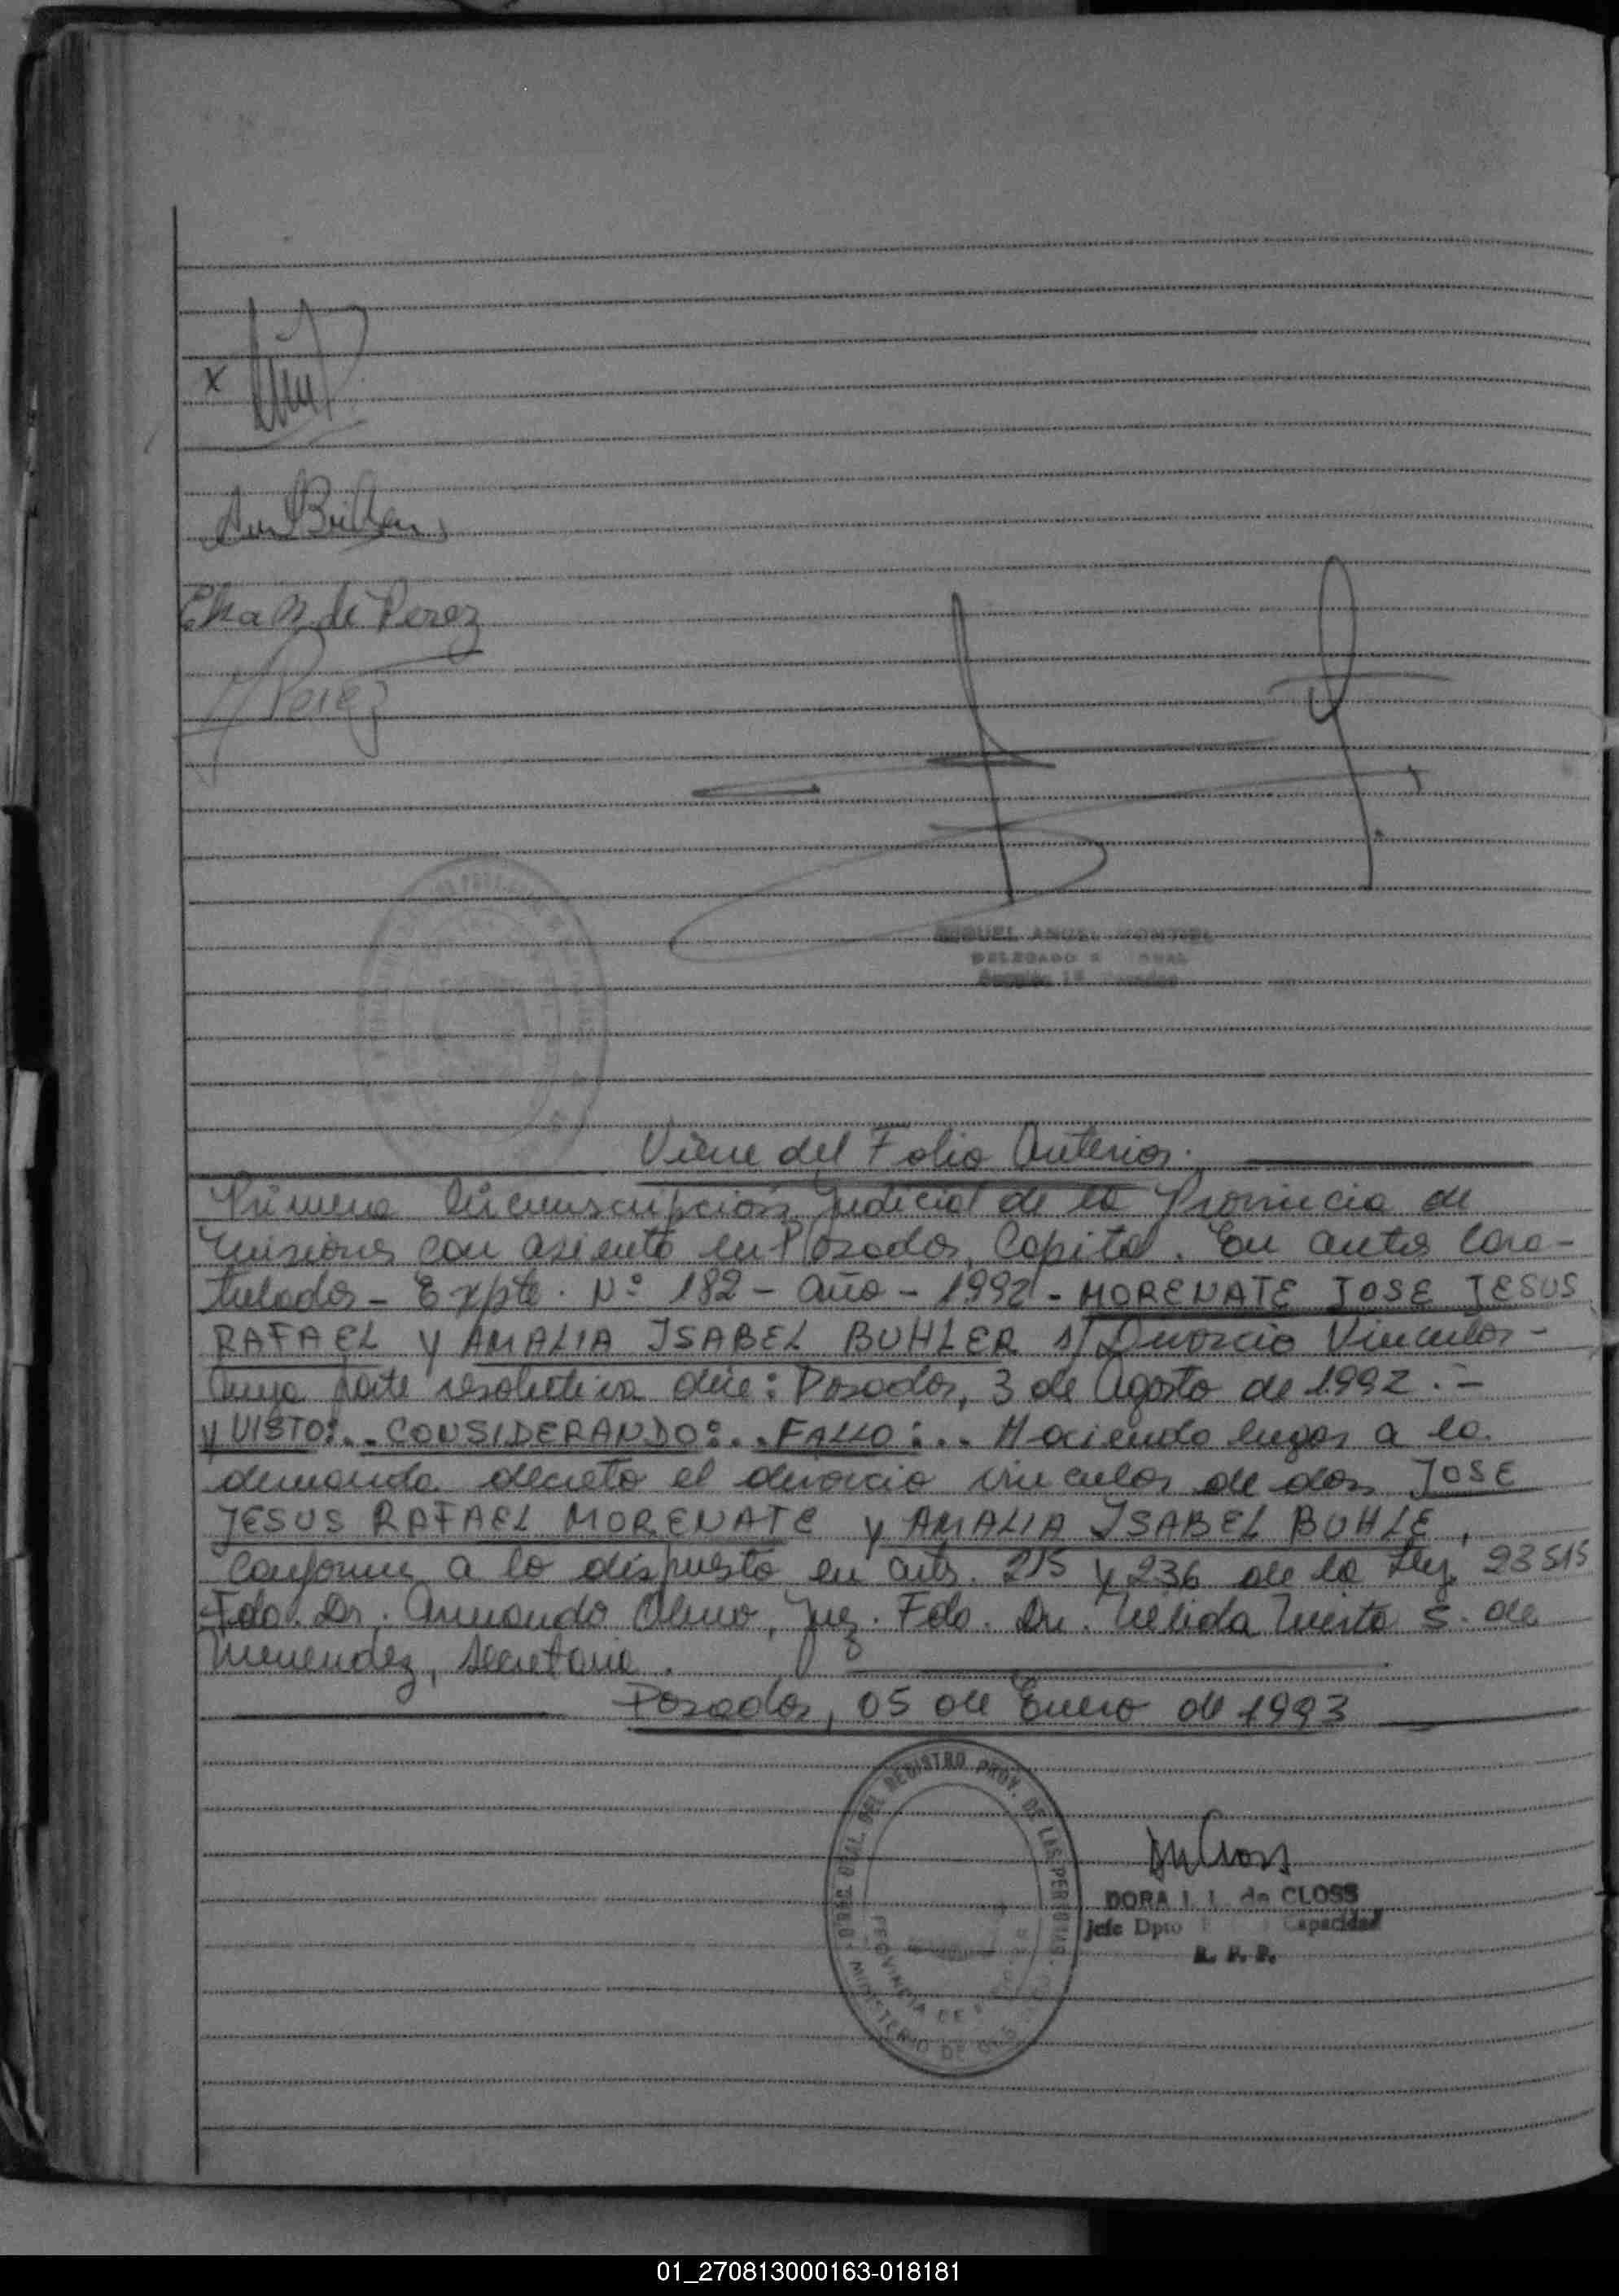 x
Elsa N. de Perez
Perez
MIGUEL ANGEL MONTIEL
DELEGADO
Viene del Folio Anterior.
Primera Circunscripción Judicial de la Provincia de
Misiones con asiento en Posadas, Capital. En autos Cara-
tulados - Expte. Nº 182 - Año - 1992 - MORENATE JOSE JESUS
RAFAEL y AMALIA ISABEL BUHLER s/ Divorcio Vincular -
Cuya parte resolutiva dice: Posadas, 3 de Agosto de 1992. -
Y VISTO:.. CONSIDERANDO:.. FALLO:... Haciendo lugar a la
demanda decreto el divorcio vincular de don JOSE
JESUS RAFAEL MORENATE y AMALIA ISABEL BUHLE,
Conforme a lo dispuesto en arts. 215 y 236 de la Ley 23515
Fdo. Dr. Armando Olmo, Juez. Fdo. Dra. S. de
Menendez, secretaria.
Posadas, 05 de Enero de 1993
DEL REGISTRO PROV. DE LAS PERSONAS
PROVINCIA DE
MINISTERIO DE
DORA I. L. de CLOSS
Jefe Dpto Capacidad
R. P. P.
01_270813000163-018181